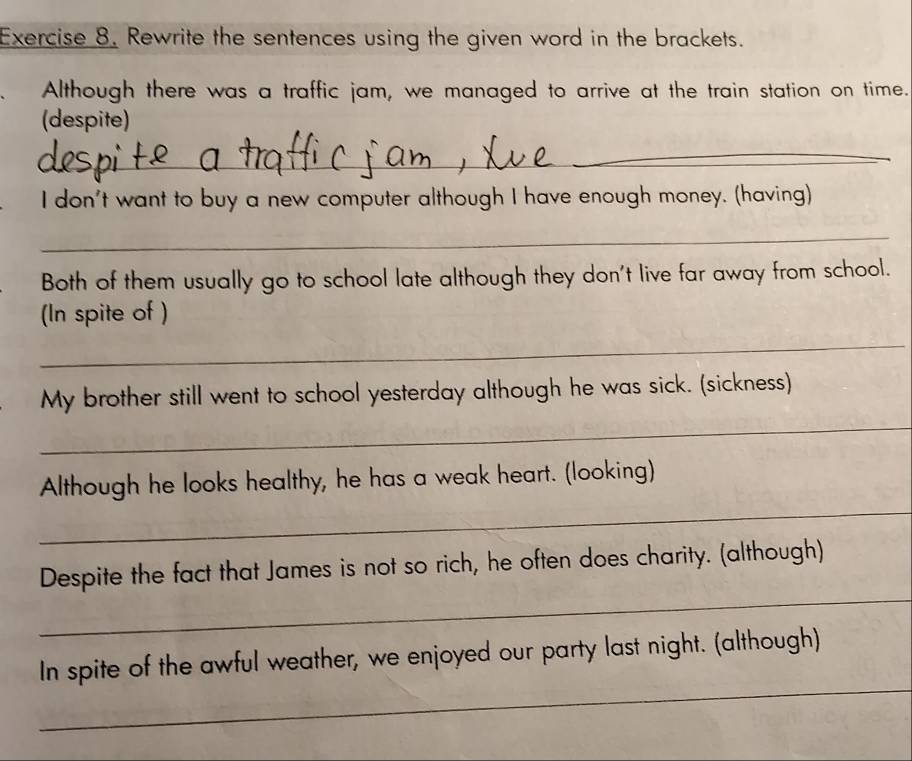 Exercise 8. Rewrite the sentences using the given word in the brackets.
Although there was a traffic jam, we managed to arrive at the train station on time.
(despite)
despite a traffic jam, we
I don't want to buy a new computer although I have enough money. (having)
Both of them usually go to school late although they don't live far away from school.
(In spite of )
My brother still went to school yesterday although he was sick. (sickness)
Although he looks healthy, he has a weak heart. (looking)
Despite the fact that James is not so rich, he often does charity. (although)
In spite of the awful weather, we enjoyed our party last night. (although)